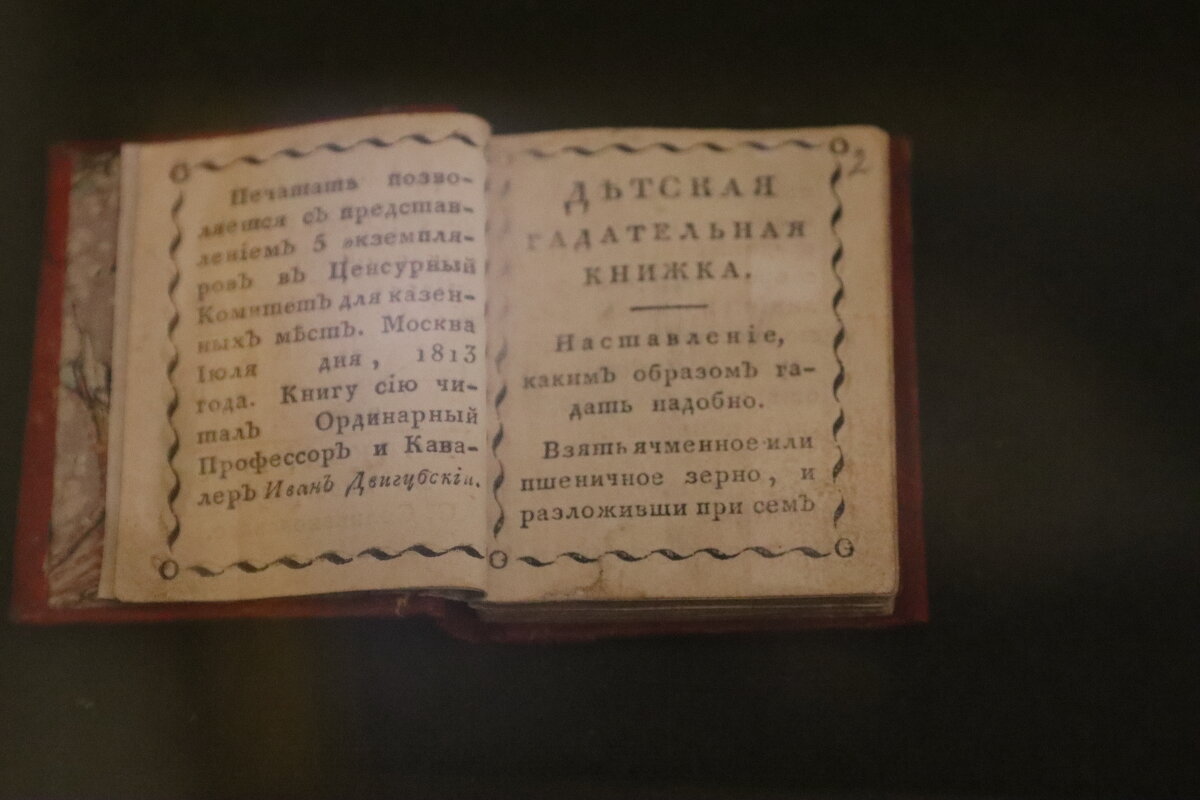 Печатать позво-
ляется съ представ-
леніемъ 5 экземпля-
ровъ въ Ценсурный
Комитетъ для казен-
ныхъ мѣстъ. Москва
Іюля дня, 1813
года. Книгу сію чи-
талъ Ординарный
Профессоръ и Кава-
леръ Иванъ Двигубскій.
2
ДѢТСКАЯ
ГАДАТЕЛЬНАЯ
КНИЖКА.
Наставленіе,
какимъ образомъ га-
дать надобно.
Взять ячменное или
пшеничное зерно, и
разложивши при семъ